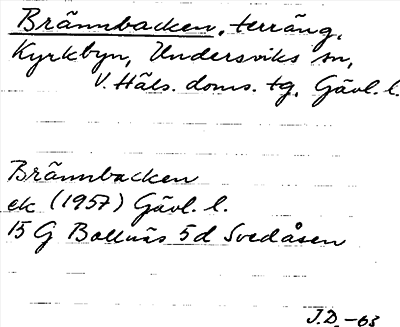 Brännbacken, terräng,
Kyrkbyn, Undersviks sn,
V. Häls. doms. tg, Gävl. l.
Brännbacken
ek (1957) Gävl. l.
15 G Bollnäs 5d Svedåsen
J.D. -63